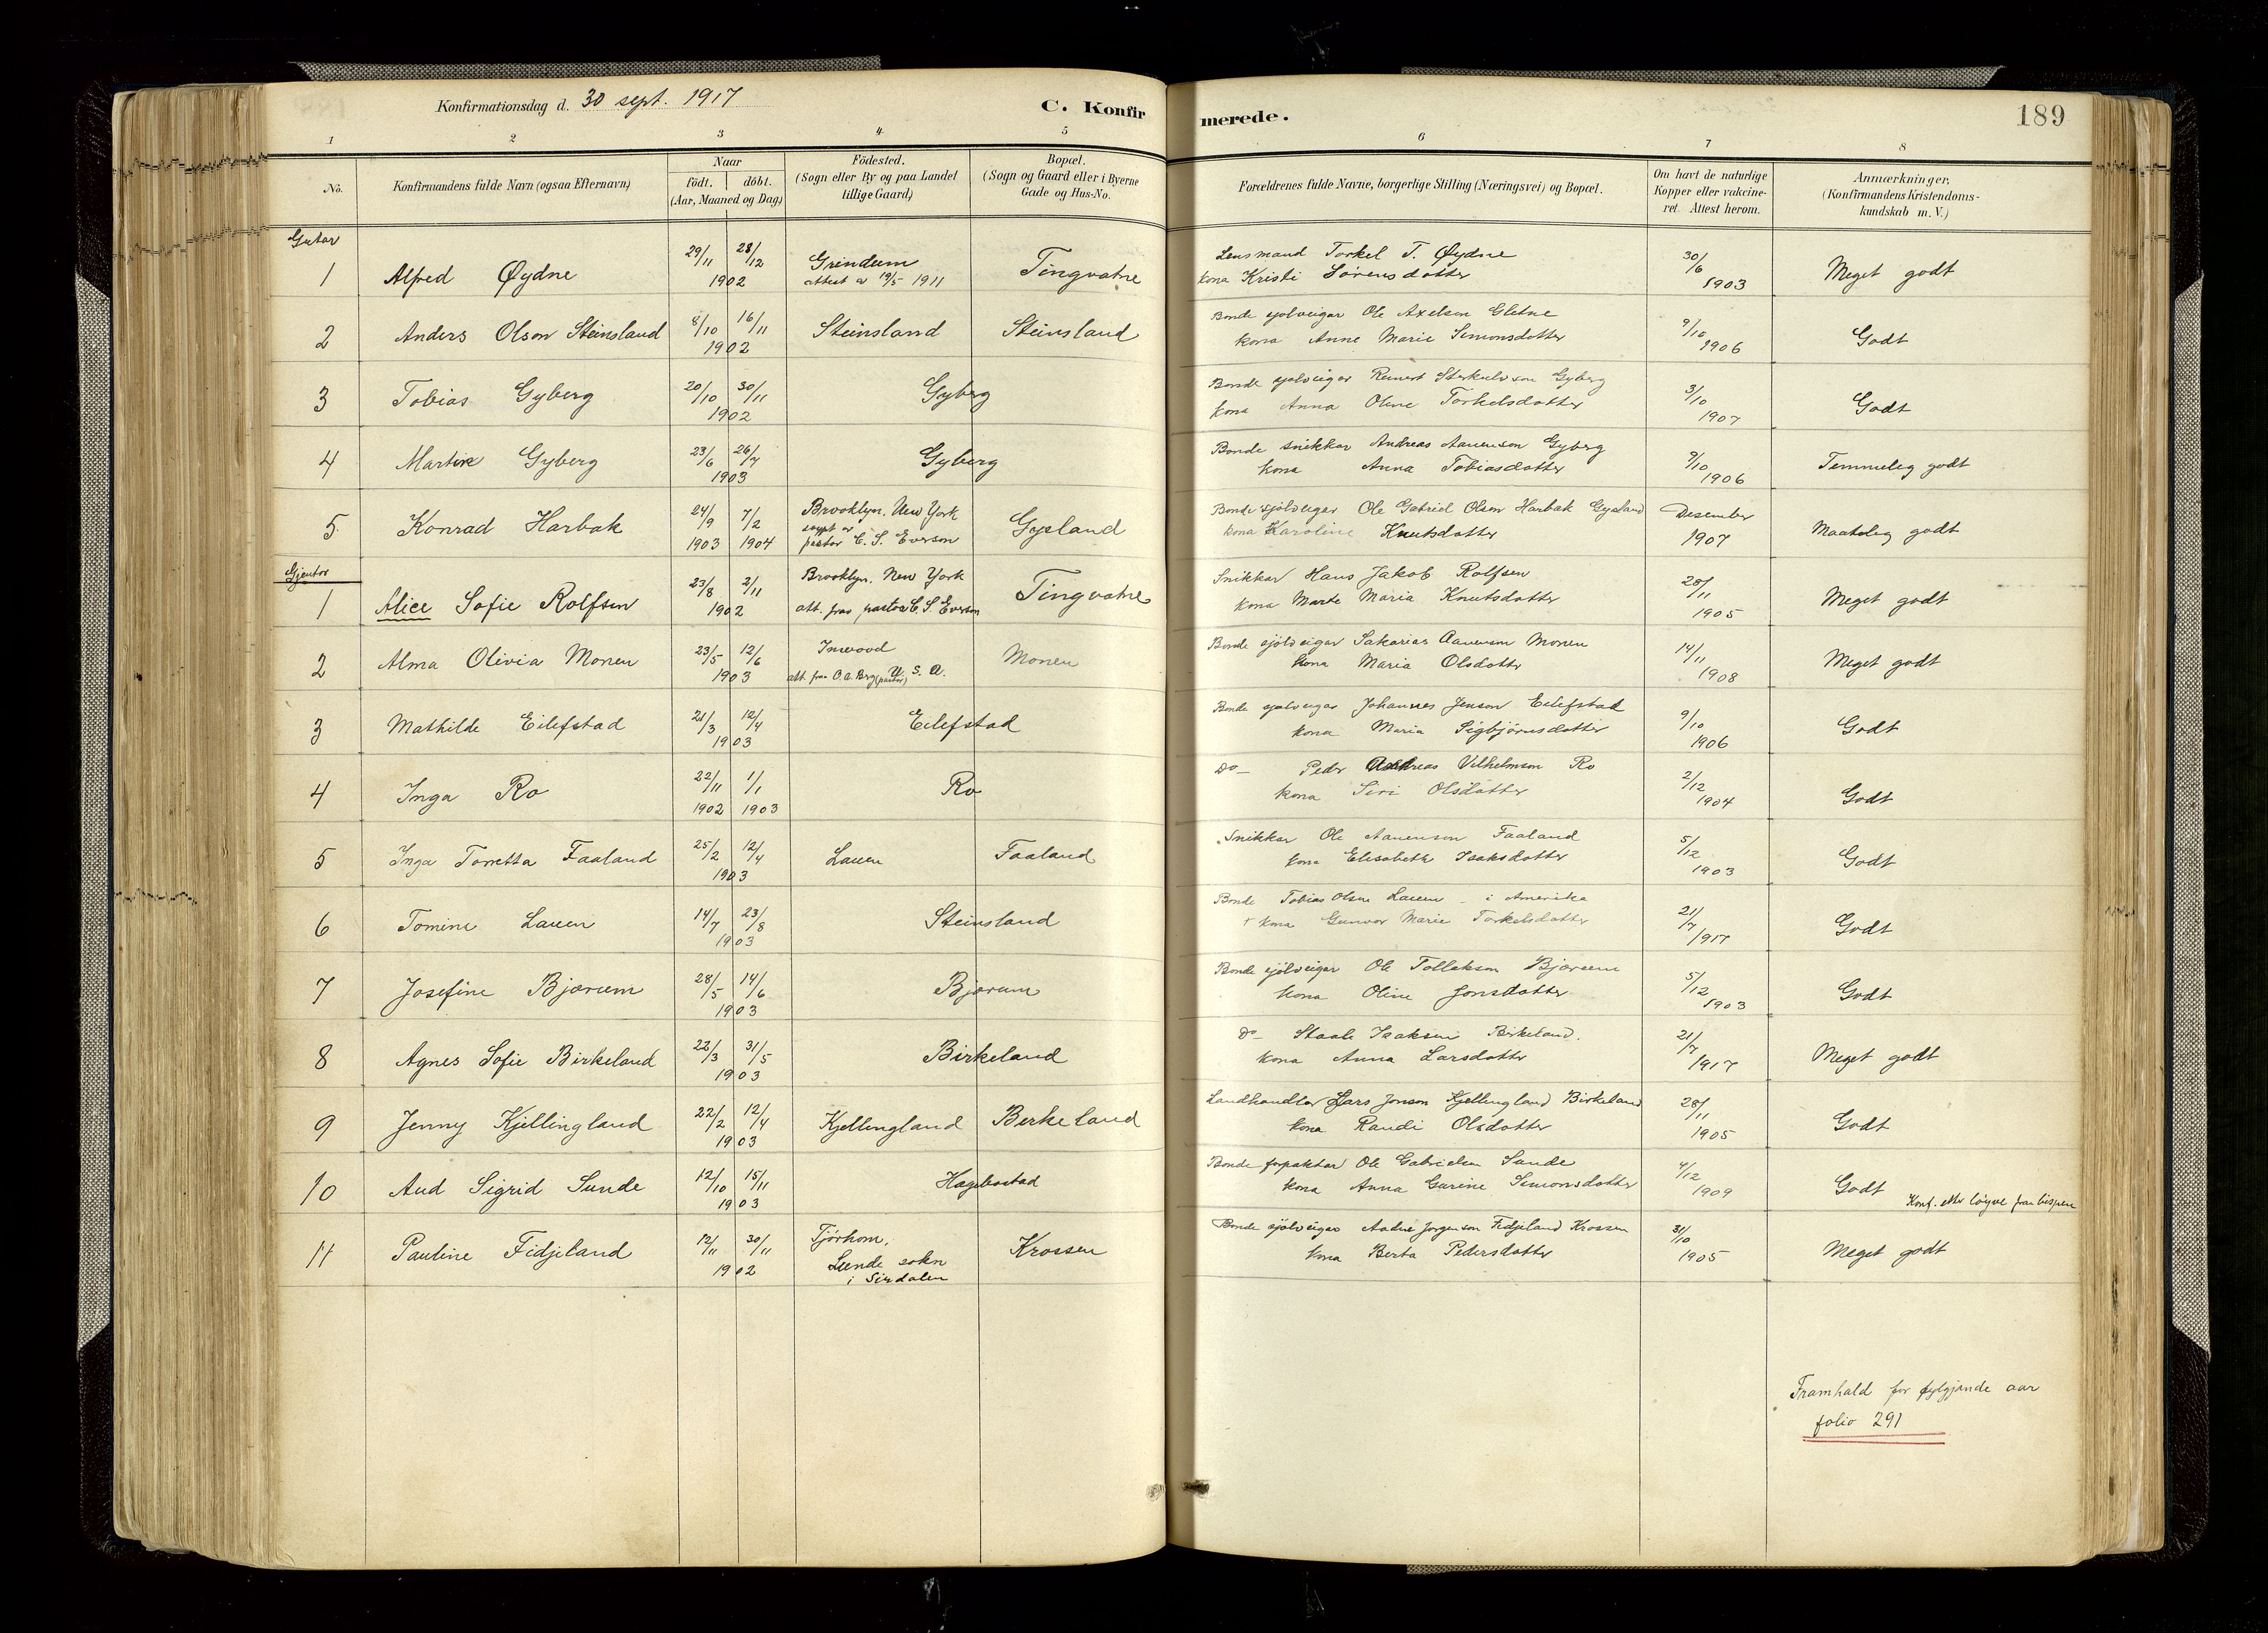 Konfirmationsdag d. 30 sept. 1917
C. Konfirmerede.
189
1 2 3 4 5 6 7 8
No.
Konfirmandens fulde Navn (ogsaa Efternavn)
Naar
födt. | döbt.
(Aar, Maaned og Dag)
Födested.
(Sogn eller By og paa Landet
tillige Gaard)
Bopæl.
(Sogn og Gaard eller i Byerne
Gade og Hus-No.
Forældrenes fulde Navne, borgerlige Stilling (Næringsvei) og Bopæl.
Om havt de naturlige
Kopper eller vakcine-
ret. Attest herom.
Anmærkninger,
(Konfirmandens Kristendoms-
kundskab m. V.)
Gutar
1 Alfred Øydne 29/11 28/12 1902 Grindum attest av 19/5 1911 Tingvatne
Lensmand Torkel T. Øydne
kona Kristi Sörensdotter
30/6 1903 Meget godt
2 Anders Olson Steinsland 8/10 16/11 1902 Steinsland Steinsland
Bonde sjolveigar Ole Axelson Gletne
kona Anne Marie Simonsdotter
9/10 1906 Godt
3 Tobias Gyberg 20/10 30/11 1902 Gyberg
Bonde sjolveigar Reinert Sterkulvson Gyberg
kona Anna Oline Torkelsdotter
3/10 1907 Godt
4 Martin Gyberg 23/6 26/7 1903 Gyberg
Bonde snikkar Andreas Aanenson Gyberg
kona Anna Tobiasdotter
9/10 1906 Temmeleg godt
5. Konrad Harbak 24/9 1903 7/2 1904 Brooklyn, New York
pastor C. S. Everson Gyeland
Bonde sjölveigar Ole Gabriel Olson Harbak Gyeland
kona Karoline Knutsdotter
Desember 1907 Maateleg godt
Gjentor
1 Alice Sofie Rolfsen 23/8 2/11 1902 Brooklyn, New York
att. fraa pastor C. S. Everson Tingvatne
Snikkar Hans Jakob Rolfsen
kona Marte Maria Knutsdotter
28/11 1905 Meget godt
2 Alma Olivia Monen 23/5 12/6 1903 Inwood
att. fraa O. A. Berg (pastor) U. S. A. Monen
Bonde sjölveigar Sakarias Aanenson Monen
kona Maria Olsdotter
14/11 1908 Meget godt
3 Mathilde Eilefstad 21/3 12/4 1903 Eilefstad
Bonde sjolveigar Johannes Jenson Eilefstad
kona Maria Sigbjörnsdotter
9/10 1906 Godt
4 Inga Ro 22/11 1902 1/1 1903 Ro
Do - Peder Andreas Vilhelmson Ro
kona Siri Olsdotter
2/12 1904 Godt
5 Inga Torretta Faaland 25/2 12/4 1903 Lauen Faaland
Snikkar Ole Aanenson Faaland
kona Elisabeth Isaksdotter
5/12 1903 Godt
6 Tomine Lauen 14/7 23/8 1903 Steinsland
Bonde Tobias Olsen Lauen - i Amerika
+ kona Gunvor Marie Torkelsdotter
21/7 1917 Godt
7 Josefine Bjærum 28/5 14/6 1903 Bjærum
Bonde sjölveigar Ole Tollakson Bjærum
kona Oline Jonsdotter
5/12 1903 Godt
8 Agnes Sofie Birkeland 22/3 31/5 1903 Birkeland
Do - Staale Isaksen Birkeland.
kona Anna Larsdotter
21/7 1917 Meget godt
9 Jenny Kjellingland 22/2 12/4 1903 Kjellingland Birkeland
Landhandlar Lars Jonson Kjellingland Birkeland
kona Randi Olsdotter
28/11 1905 Godt
10 Aud Sigrid Sunde 12/10 15/11 1903 Hægebostad
Bonde forpaktar Ole Gabrielsen Sunde
kona Anna Gurine Simonsdotter
4/12 1909 Godt Konf. etter löyve fraa bispen
11 Pauline Fidjeland 12/11 30/11 1902 Tjörhom,
Lunde sokn
i Sirdalen Krossen
Bonde sjölveigar Aadne Jorgenson Fidjeland Krossen
kona Berta Pedersdotter
31/10 1905 Meget godt
Framhald for fylgjande aar
folio 291